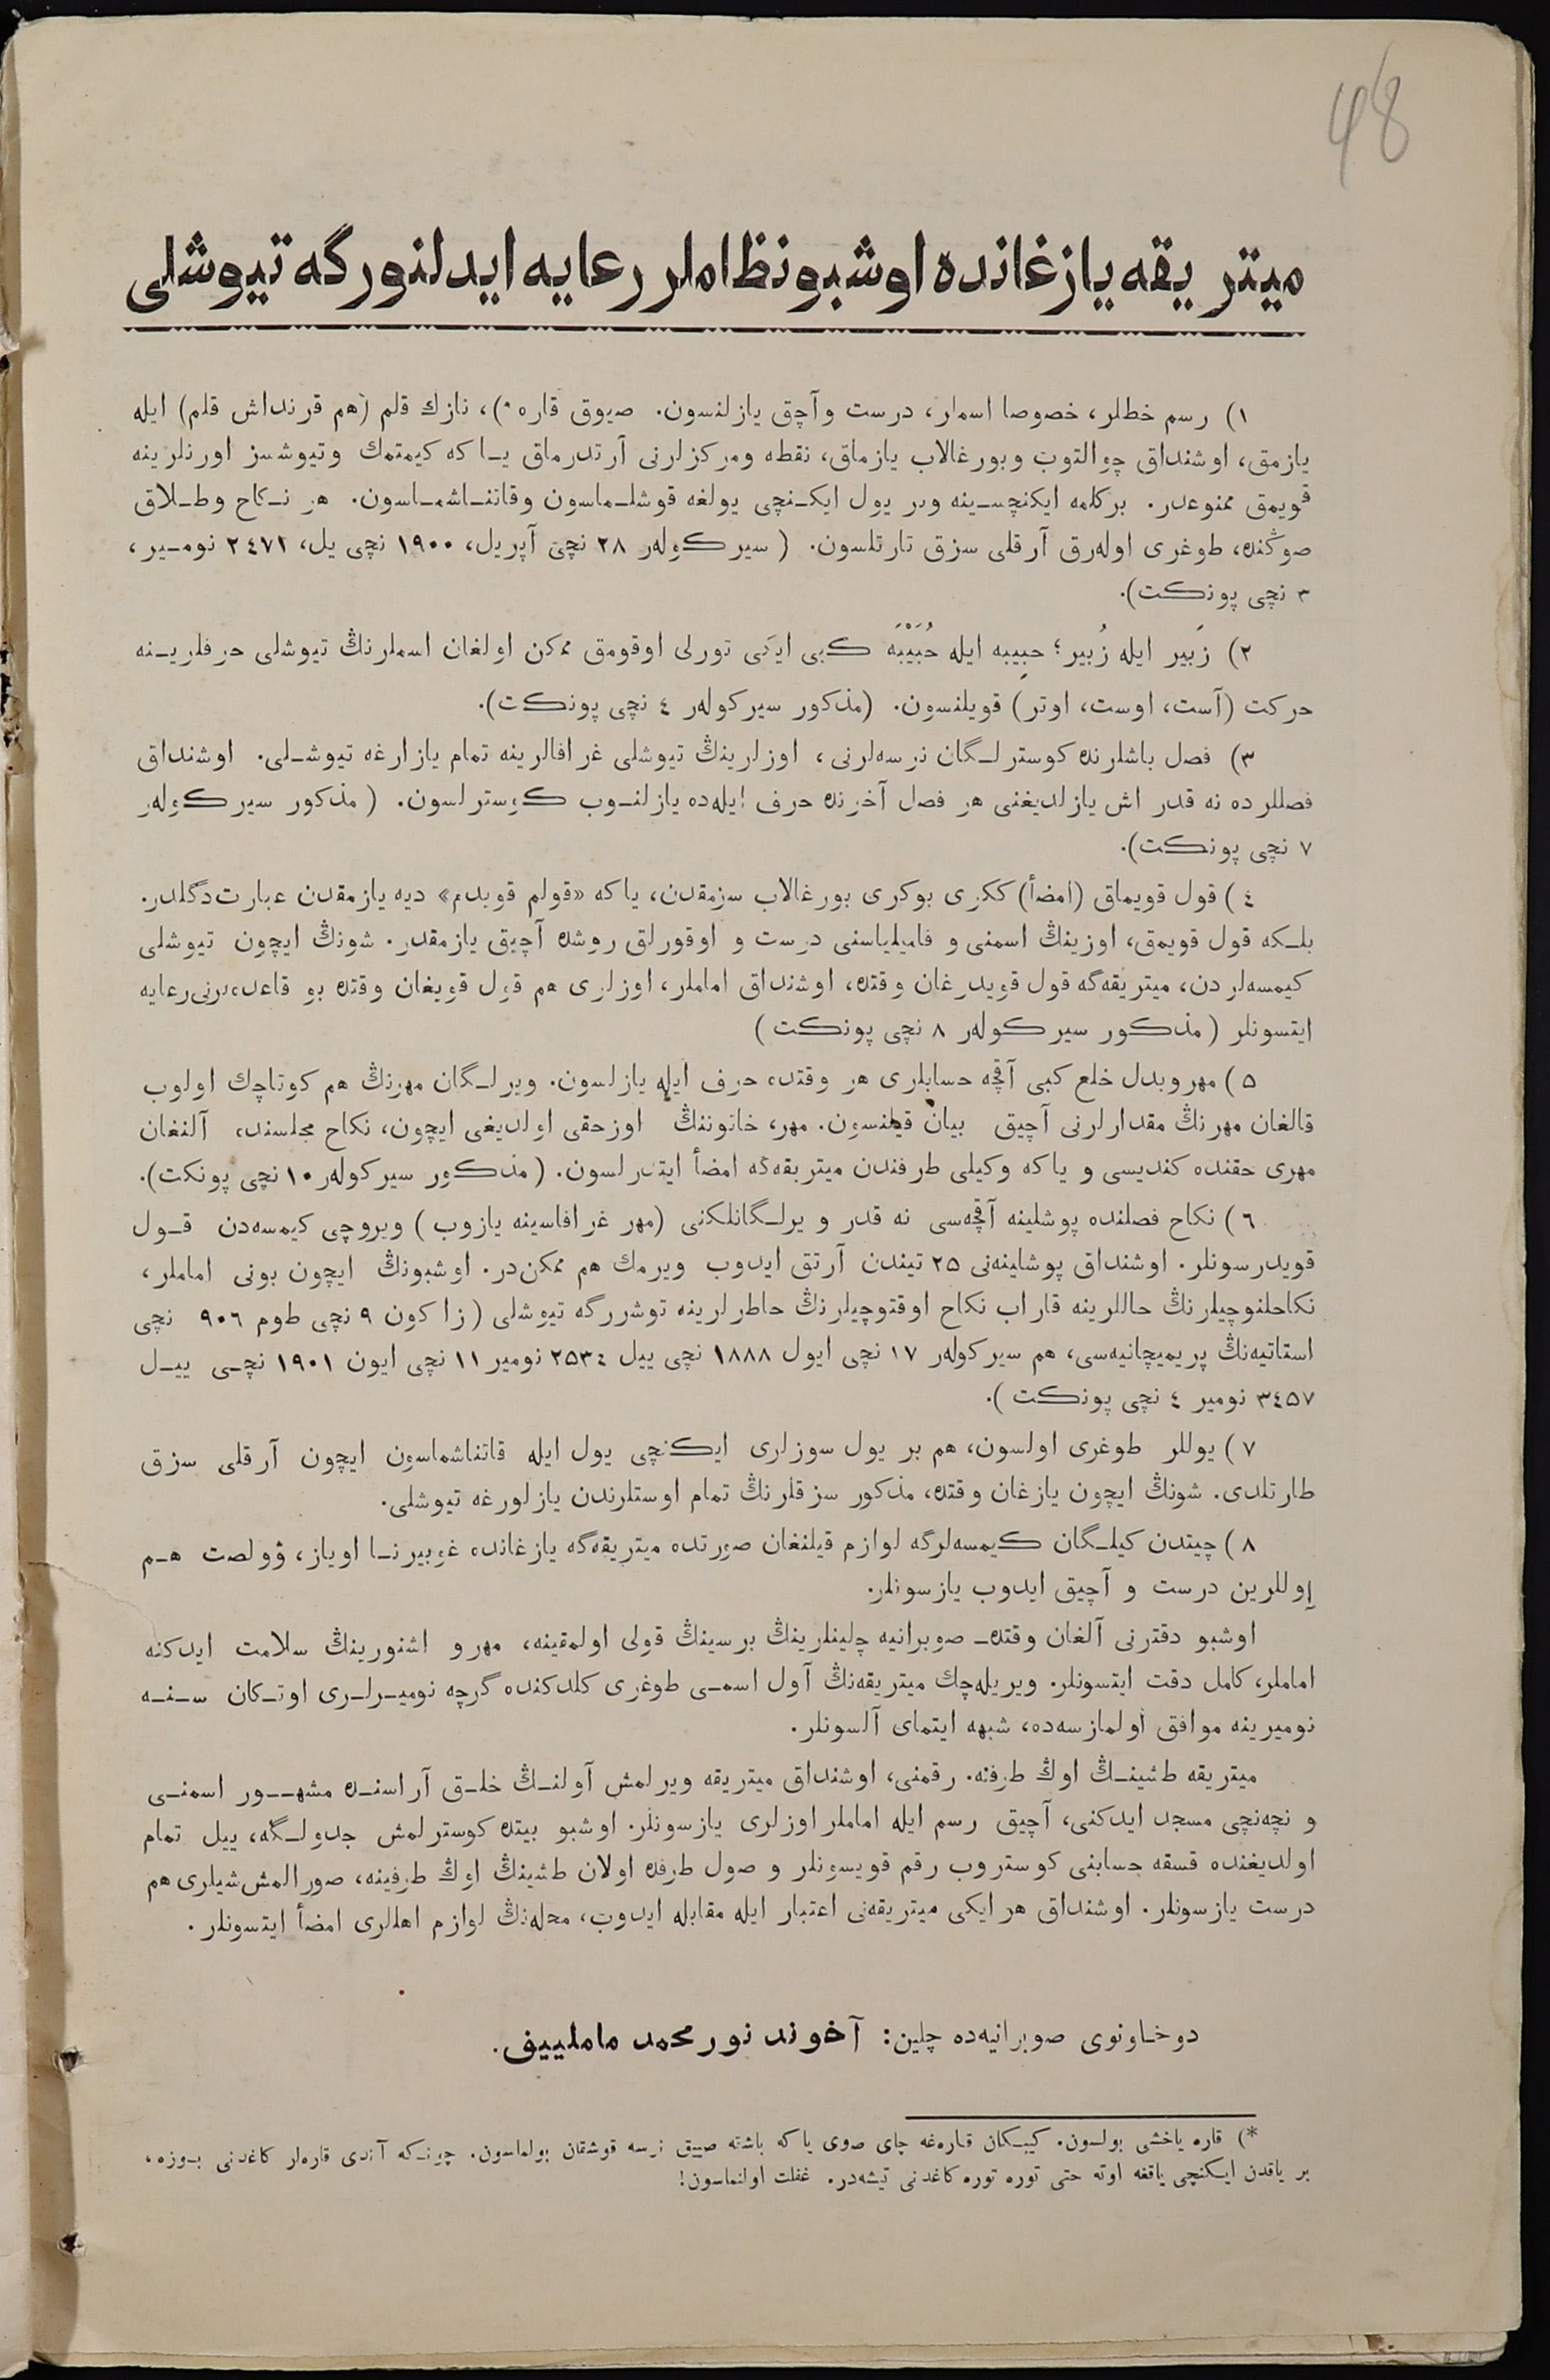 48
ميتريقه يازغانده اوشبو نظاملر رعايه ايدلنورگه تيوشلى
١) رسم خطلر، خصوصا اسملر، درست و آچق يازلنسون. صيوق قاره *)، نازك قلم (هم قرنداش قلم) ايله
يازمق، اوشنداق چوالتوب وبورغالاب يازماق، نقطه ومركزلرنى آرتدرماق يا كه كيمتمك وتيوشسز اورنلرينه
قويمق ممنوعدر. بركلمه ايكنچسينه وبر يول ايكنچى يولغه قوشلماسون وقاتناشماسون. هر نكاح وطلاق
صوڭنده، طوغرى اوله‌رق آرقلى سزق تارتلسون. (سيركولەر ٢٨ نچى آپريل، ١٩٠٠ نچى يل، ٢٤٧١ نومير،
٣ نچى پونكت).
٢) زَبير ايله زُبير؛ حبِيبه ايله حُبَيْبَه كبى ايكى تورلى اوقومق ممكن اولغان اسملرنڭ تيوشلى حرفلرينه
حركت (آست، اوست، اوتر) قويلنسون. (مذكور سيركولەر ٤ نچى پونكت).
٣) فصل باشلرنده كوسترلگان نرسه‌لرنى، اوزلرينڭ تيوشلى غرافالرينه تمام يازارغه تيوشلى. اوشنداق
فصللرده نه قدر اش يازلديغنى هر فصل آخرنده حرف ايله‌ده يازلنوب كوسترلسون. (مذكور سيركولەر
٧ نچى پونكت).
٤) قول قويماق (امضأ) ككرى بوكرى بورغالاب سزمقدن، ياكه «قولم قويدم» ديه يازمقدن عبارت دگلدر.
بلكه قول قويمق، اوزينڭ اسمنى و فاميلياسنى درست و اوقورلق روشده آچيق يازمقدر. شونڭ ايچون تيوشلى
كيمسه‌لردن، ميتريقه‌گه قول قويدرغان وقتده، اوشنداق اماملر، اوزلرى هم قول قويغان وقتده بو قاعده‌نى رعايه
ايتسونلر (مذكور سيركولەر ٨ نچى پونكت)
٥) مهر وبدل خلع كبى آقچه حسابلرى هر وقتده حرف ايله يازلسون. ويرلگان مهرنڭ هم كوتاچك اولوب
قالغان مهرنڭ مقدارلرنى آچيق بيان قيلنسون. مهر، خاتوننڭ اوزحقى اولديغى ايچون، نكاح مجلسنده، آلنغان
مهرى حقنده كنديسى و ياكه وكيلى طرفندن ميتريقه‌گه امضأ ايتدرلسون. (مذكور سيركولەر ١٠ نچى پونكت).
٦) نكاح فصلنده پوشلينه آقچه‌سى نه قدر ويرلگانلكنى (مهر غرافاسينه يازوب) ويروچى كيمسه‌دن قول
قويدرسونلر. اوشنداق پوشلينه‌نى ٢٥ تيندن آرتق ايدوب ويرمك هم ممكن‌در. اوشبونڭ ايچون بونى اماملر،
نكاحلنوچيلرنڭ حاللرينه قاراب نكاح اوقتوچيلرنڭ خاطرلرينه توشررگه تيوشلى (زاكون ٩ نچى طوم ٩٠٦ نچى
استاتيه‌نڭ پريميچانيه‌سى، هم سيركولەر ١٧ نچى ايول ١٨٨٨ نچى ييل ٢٥٣٤ نومير ١١ نچى ايون ١٩٠١ نچى ييل
٣٤٥٧ نومير ٤ نچى پونكت).
٧) يوللر طوغرى اولسون، هم بر يول سوزلرى ايكنچى يول ايله قاتناشماسون ايچون آرقلى سزق
طارتلدى. شونڭ ايچون يازغان وقتده، مذكور سزقلرنڭ تمام اوستلرندن يازلورغه تيوشلى.
٨) چيتدن كيلگان كيمسه‌لرگه لوازم قيلنغان صورتده ميتريقه‌گه يازغانده غوبيرنا اوياز، ۋولصت هم
اوللرين درست و آچيق ايدوب يازسونلر.
اوشبو دفترنى آلغان وقتده صوبرانيه چلينلرينڭ برسينڭ قولى اولمقينه، مهر و اشنورينڭ سلامت ايدكنه
اماملر، كامل دقت ايتسونلر. ويريله‌چك ميتريقه‌نڭ آول اسمى طوغرى كلدكنده گرچه نوميرلرى اوتكان سنه
نوميرينه موافق اولمازسه‌ده، شبهه ايتماى آلسونلر.
ميتريقه طشينڭ اوڭ طرفنه. رقمنى، اوشنداق ميتريقه ويرلمش آولنڭ خلق آراسنده مشهور اسمنى
و نچه‌نچى مسجد ايدكنى، آچيق رسم ايله اماملر اوزلرى يازسونلر. اوشبو بيتده كوسترلمش جدولگه، ييل تمام
اولديغنده قسقه حسابنى كوستروب رقم قويسونلر و صول طرفده اولان طشينڭ اوڭ طرفينه، صورالمش شيلرى هم
درست يازسونلر. اوشنداق هر ايكى ميتريقه‌نى اعتبار ايله مقابله ايدوب، محله‌نڭ لوازم اهللرى امضأ ايتسونلر.
دوخاونوى صوبرانيه‌ده چلين: آخوند نورمحمد ماملييف.
*) قاره ياخشى بولسون. كيبكان قاره‌غه چاى صوى ياكه باشقه صييق نرسه قوشقان بولماسون. چونكه آندى قاره‌لر كاغدنى بوزه،
بر ياقدن ايكنچى ياقغه اوته حتى توره توره كاغدنى تيشه‌در. غفلت اولنماسون!